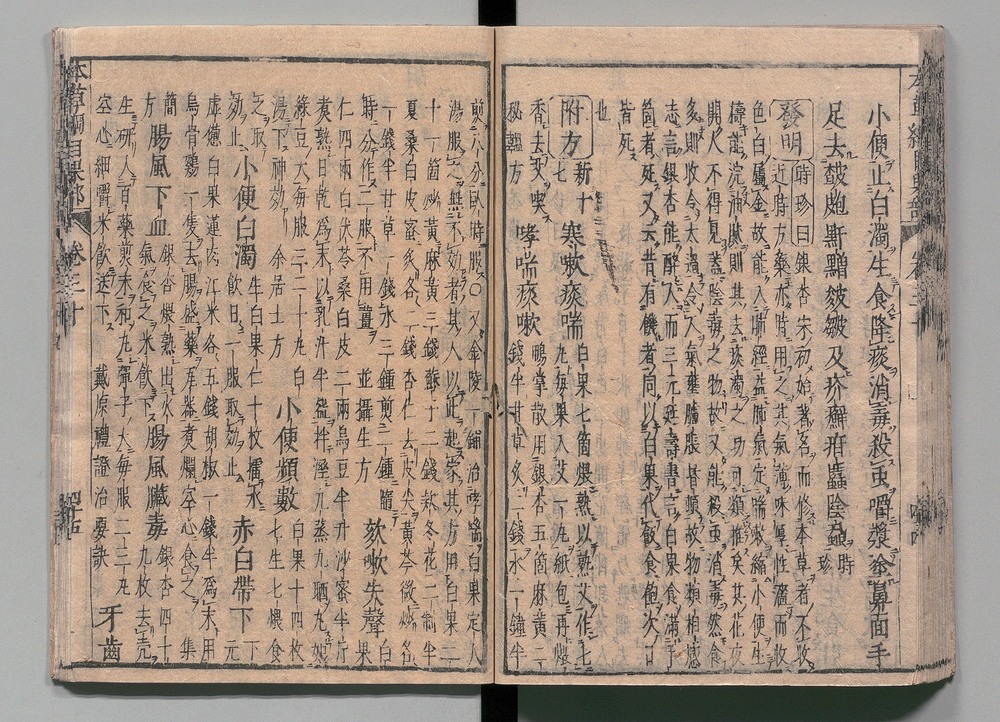 小便止白濁生食降痰消毒殺蟲嚼漿塗鼻面手
足去皻皰䵟黵皴皺及疥癬疳䘌陰蝨時珍
發明時珍曰銀杏宋初始著名而修本草者不收
近時方藥亦時用之其氣薄味厚性濇而收
色白屬金故能入肺經益肺氣定喘嗽縮小便生
擣能浣油膩則其去痰濁之功可類推矣其花夜
開人不得見蓋陰毒之物故又能殺蟲消毒然食
多則收令太過令人氣壅臚脹昏頓故物類相感
志言銀杏能醉人而三元延壽書言白果食滿千
箇者死又云昔有饑者同以白果代飯食飽次日
皆死
也
附方新十七寒嗽痰喘白果七箇煨熟以熟艾作七
丸每果入艾一丸紙包再煨
香去艾喫
秘韞方哮喘痰嗽鴨掌散用銀杏五箇麻黃二
錢半甘草炙二錢水一鐘半
煎八分臥時服○又金陵一鋪治哮喘白果定喘
湯服之無不効者其人以此起家其方用白果二
十一箇炒黃麻黃三錢蘇子二錢款冬花二錢半
夏桑白皮蜜炙各二錢杏仁去皮尖黃芩微炒各
一錢半甘草一錢水三鍾煎二鍾隨
時分作二服不用薑 並攝生方欬嗽失聲白果
仁四兩白茯苓桑白皮二兩烏豆半升沙蜜半斤
煮熟日乾爲末以乳汁半盌拌溼九蒸九晒丸如
綠豆大每服三五十丸白
湯下神効 余居士方小便頻數白果十四枚
七生七煨食
之取
効止小便白濁生白果仁十枚擂水
飲日一服取効止赤白帶下下元
虛憊白果蓮肉江米各五錢胡椒一錢半爲末用
烏骨鷄一隻去腸盛藥瓦器煮爛空心食之 集
簡
方腸風下血銀杏煨熟出火
氣食之米飲下腸風臟毒銀杏四十
九枚去壳
生研入百藥煎末和丸彈子大每服二三丸
空心細嚼米飲送下 戴原禮證治要訣牙齒
本草綱目果部
卷三十